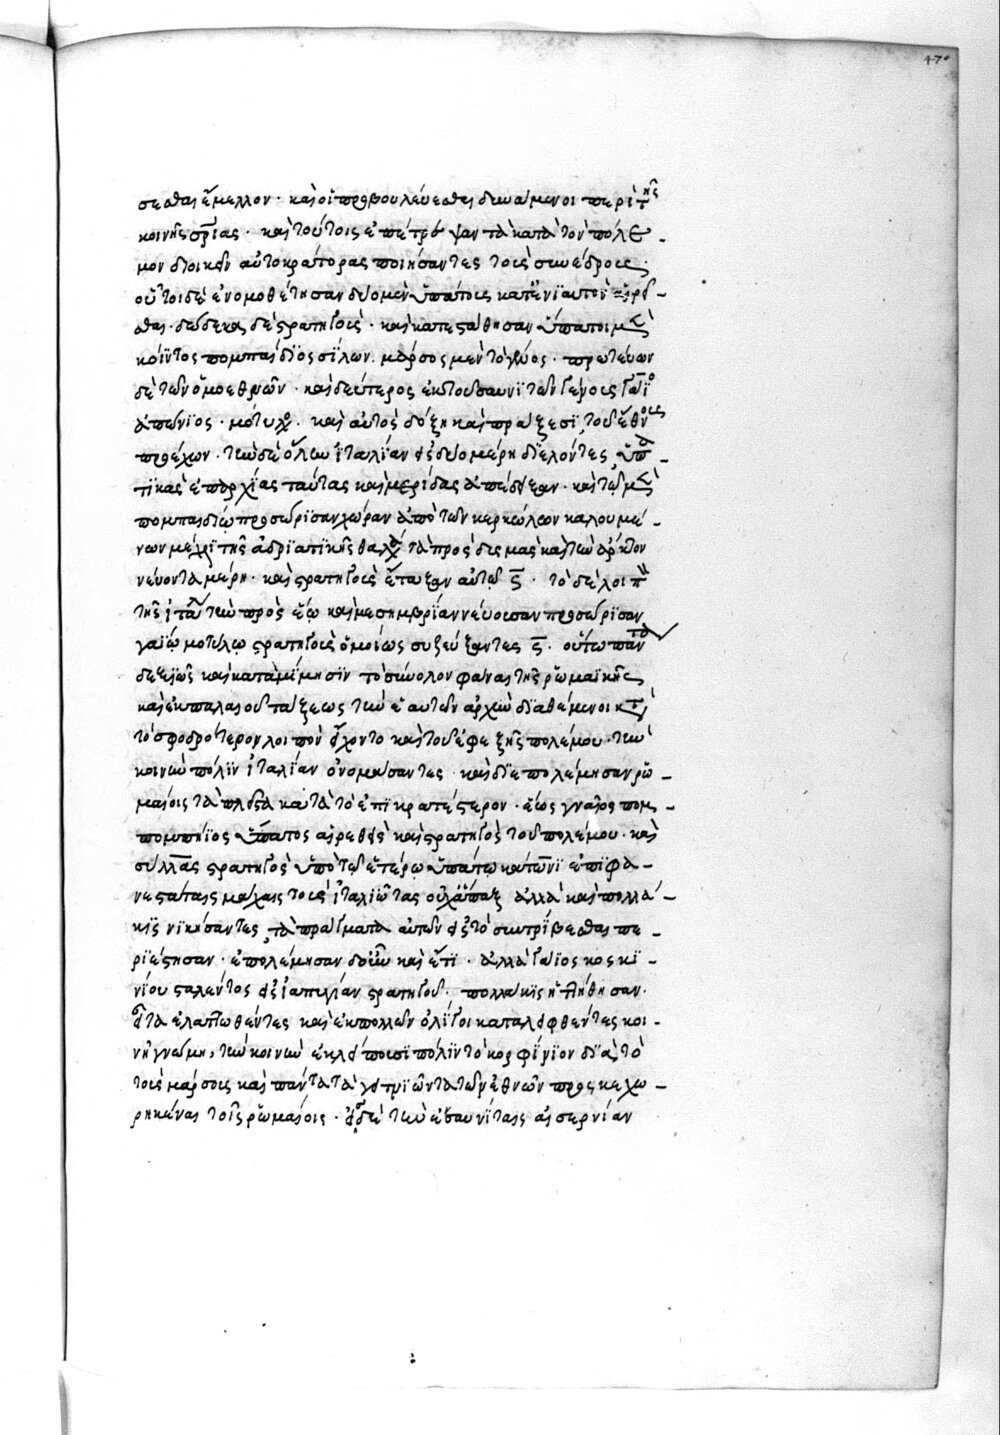 σεσθαι ἔμελλον· καὶ οἱ προβουλεύεσθαι δυνάμενοι περὶ τῆς
κοινῆς σρίας· καὶ τούτοις ἐπέτρεψαν τὰ κατὰ τὸν πόλε-
μον διοικεῖν αὐτοκράτορας ποιήσαντες τοὺς συνέδρους·
οὗτοι δὲ ἐνομοθέτησαν δύο μὲν ὑπάτους κατ' ἐνϊαυτὸν αἱρεῖ-
σθαι· δώδεκα δὲ στρατηγοὺς· καὶ κατεστάθησαν ὕπατοι μὲν
κόϊντος πομπαίδϊος σίλων. μάρσος μὲν τὸ γένος· πρωτεύων
δὲ τῶν ὁμοεθνῶν· καὶ δεύτερος ἐκ τοῦ σαυνϊτῶν γένους γάϊος
ἀπώνϊος· μότυλος. καὶ αὐτὸς δόξῃ καὶ πράξεσϊ τοῦ ἔθνους
προέχων. τὴν δὲ ὅλην ἰταλίαν εἰς δύο μέρη διελόντες, ὑπα-
τϊκὰς ἐπαρχίας ταύτας καὶ μερίδας ἀπέδειξαν· καὶ τῷ μὲν
πομπαιδίῳ προσώρϊσαν χώραν ἀπὸ τῶν κερκώλων καλουμέ-
νων μέχρϊ τῆς ἀδρϊατικῆς θαλάττης τὰ πρὸς δυσμὰς καὶ τὴν ἄρκτον
νεύοντα μέρη· καὶ στρατηγοὺς ἔταξαν αὐτῷ ϛ· τὸ δὲ λοιπὸν
τῆς ἰταλίας τὴν πρὸς ἕω καὶ μεσημβρίαν νεύουσαν προσώρϊσαν
γαΐῳ μοτύλῳ στρατηγοὺς ὁμοίως συζεύξαντες ϛ· οὕτω πάντα
δεξϊῶς καὶ κατὰ μίμησϊν τὸ σύνολον φάναι τῆς ῥωμαϊκῆς
καὶ ἐκ παλαιοῦ τάξεως τὴν ἑαυτῶν ἀρχὴν διαθέμενοι κατὰ
τὸ σφοδρότερον λοιπὸν εἴχοντο καὶ τοῦ ἐφεξῆς πολέμου· τὴν
κοινὴν πόλϊν ἰταλίαν ὀνομάσαντες· καὶ δϊεπολέμησαν ῥω-
μαίοις τὰ πλεῖστα κατὰ τὸ ἐπϊκρατέστερον· ἕως γναῖος πομ-
πομπήϊος ὕπατος αἱρεθεὶς καὶ στρατηγὸς τοῦ πολέμου· καὶ
σύλλας στρατηγὸς ὑπὸ τῷ ἑτέρῳ ὑπάτῳ κάτωνι ἐπϊφα-
νεστάταις μάχαις τοὺς ἰταλϊώτας οὐχ ἅπαξ ἀλλὰ καὶ πολλά-
κϊς νϊκήσαντες, τὰ πράγματα αὐτῶν εἰς τὸ συντρίβεσθαι πε-
ρϊέστησαν· ἐπολέμησαν δ' οὖν καὶ ἔτϊ· ἀλλὰ γαΐος κοσκϊ-
νίου σταλέντος εἰς ἰαπυγίαν στρατηγοῦ· πολλάκϊς ἡττήθησαν·
εἶτα ἐλαττωθέντες καὶ ἐκ πολλῶν ὀλίγοι καταλειφθέντες κοι-
νῇ γνώμῃ, τὴν κοινὴν ἐκλείπουσϊ πόλϊν τὸ κορφίνϊον δϊὰ τὸ
τοὺς μάρσους καὶ πάντα τὰ γειτνϊῶντα τῶν ἐθνῶν προσκεχω-
ρηκέναι τοῖς ῥωμαίοις· εἰς δὲ τὴν ἐν σαυνίταις αἰσερνίαν